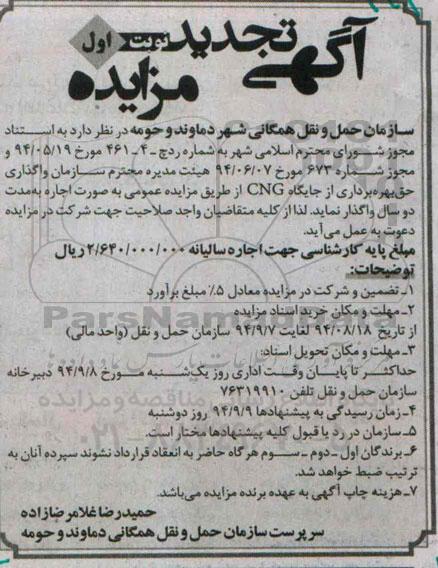 آگهی تجدید مزایده
نوبت اول
سازمان حمل و نقل همگانی شهر دماوند و حومه در نظر دارد به استناد
مجوز شورای محترم اسلامی شهر به شماره ردچ ـ ۴ ـ ۴۶۱ مورخ ۹۴/۰۵/۱۹ و
مجوز شماره ۶۷۳ مورخ ۹۴/۰۶/۰۷ هیئت مدیره محترم سازمان واگذاری
حق بهره‌برداری از جایگاه CNG از طریق مزایده عمومی به صورت اجاره به‌مدت
دو سال واگذار نماید. لذا از کلیه متقاضیان واجد صلاحیت جهت شرکت در مزایده
دعوت به عمل می‌آید.
مبلغ پایه کارشناسی جهت اجاره سالیانه ۲/۶۴۰/۰۰۰/۰۰۰ ریال
توضیحات:
۱ـ تضمین و شرکت در مزایده معادل ۵٪ مبلغ برآورد
۲ـ مهلت و مکان خرید اسناد مزایده
از تاریخ ۹۴/۰۸/۱۸ لغایت ۹۴/۹/۷ سازمان حمل و نقل (واحد مالی)
۳ـ مهلت و مکان تحویل اسناد:
حداکثر تا پایان وقت اداری روز یک‌شنبه مورخ ۹۴/۹/۸ دبیرخانه
سازمان حمل و نقل تلفن ۷۶۳۱۹۹۱۰
۴ـ زمان رسیدگی به پیشنهادها ۹۴/۹/۹ روز دوشنبه
۵ـ سازمان در رد یا قبول کلیه پیشنهادها مختار است.
۶ـ برندگان اول ـ دوم ـ سوم هرگاه حاضر به انعقاد قرارداد نشوند سپرده آنان به
ترتیب ضبط خواهد شد.
۷ـ هزینه چاپ آگهی به عهده برنده مزایده می‌باشد.
حمیدرضا غلامرضازاده
سرپرست سازمان حمل و نقل همگانی دماوند و حومه
ParsNamad